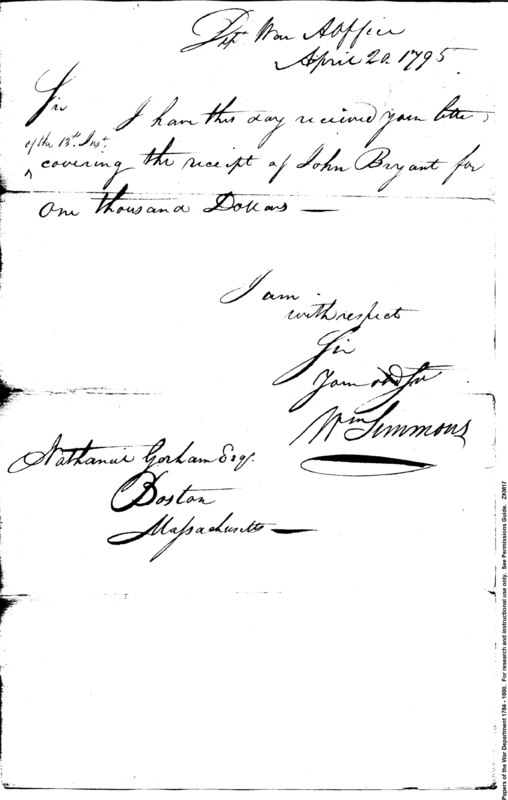 Dept War A Office
April 20. 1795
Sir
I have this day received your letter,
of the 13th Inst.
^ covering the receipt of John Bryant for
One thousand Dollars —
I am
with respect
Sir
Your obd Sr
Wm Simmons
Nathaniel Gorham Esqr.
Boston
Massachusetts —
Papers of the War Department 1784 - 1800. For research and instructional use only. See Permissions Guide. ZKM17